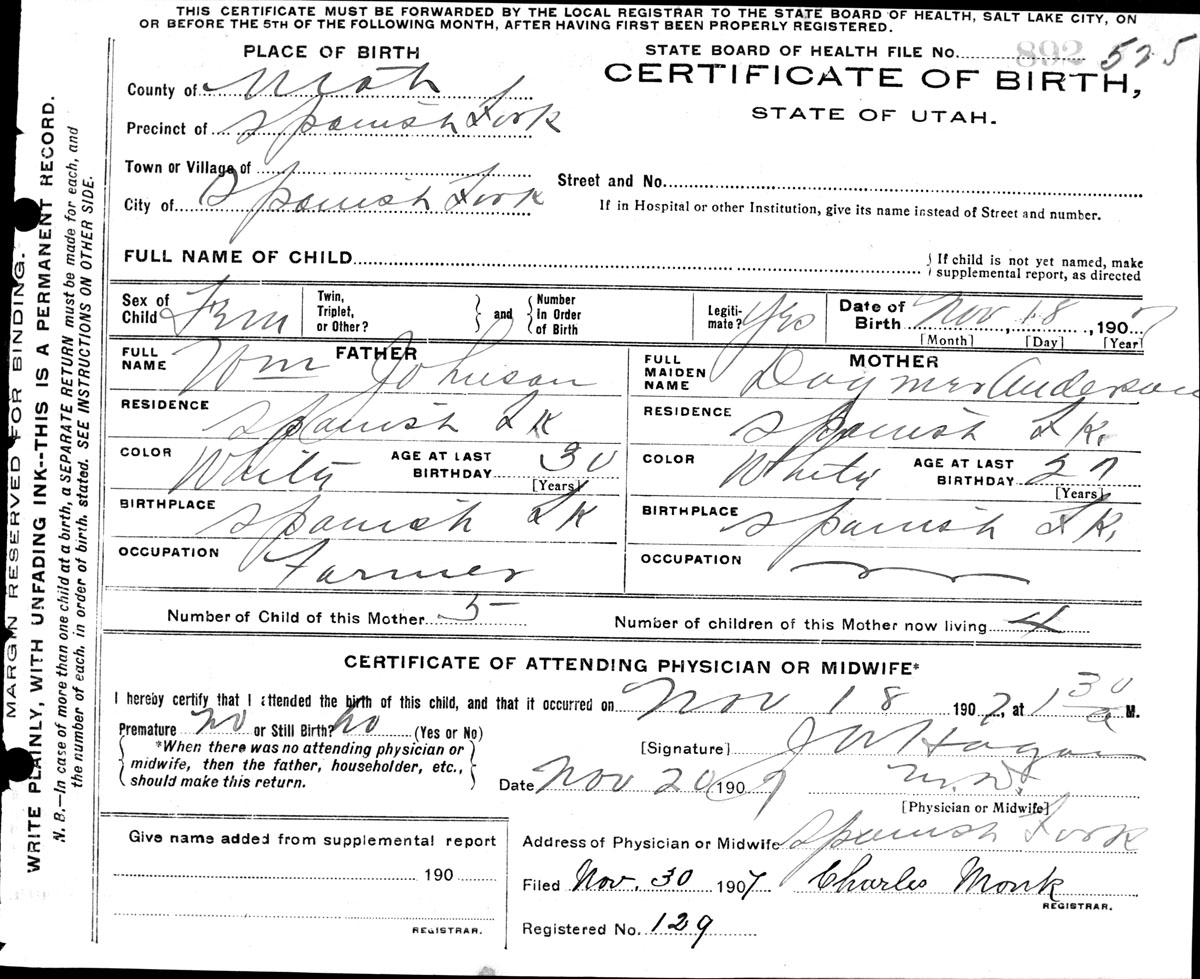 THIS CERTIFICATE MUST BE FORWARDED BY THE LOCAL REGISTRAR TO THE STATE BOARD OF HEALTH, SALT LAKE CITY, ON
OR BEFORE THE 5TH OF THE FOLLOWING MONTH, AFTER HAVING FIRST BEEN PROPERLY REGISTERED.
MARGIN RESERVED FOR BINDING.
WRITE PLAINLY, WITH UNFADING INK--THIS IS A PERMANENT RECORD.
N. B.—In case of more than one child at a birth, a SEPARATE RETURN must be made for each, and
the number of each, in order of birth, stated. SEE INSTRUCTIONS ON OTHER SIDE.
PLACE OF BIRTH
County of Utah
Precinct of Spanish Fork
Town or Village of
City of Spanish Fork
STATE BOARD OF HEALTH FILE No. 892 525
CERTIFICATE OF BIRTH,
STATE OF UTAH.
Street and No.
If in Hospital or other Institution, give its name instead of Street and number.
FULL NAME OF CHILD
{ If child is not yet named, make
supplemental report, as directed
Sex of Child Fem
Twin, Triplet, or Other?
} and {
Number In Order of Birth
Legiti- mate? Yes
Date of Birth Nov, 18, 1907
[Month] [Day] [Year]
FATHER
FULL NAME Wm Johnson
RESIDENCE Spanish Fk
COLOR White AGE AT LAST BIRTHDAY 30
[Years]
BIRTHPLACE Spanish Fk
OCCUPATION Farmer
MOTHER
FULL MAIDEN NAME Anderson
RESIDENCE Spanish Fk.
COLOR White AGE AT LAST BIRTHDAY 27
[Years]
BIRTHPLACE Spanish Fk.
OCCUPATION
Number of Child of this Mother 5
Number of children of this Mother now living 4
CERTIFICATE OF ATTENDING PHYSICIAN OR MIDWIFE*
I hereby certify that I attended the birth of this child, and that it occurred on Nov 18 1907, at 1 30 a M.
Premature no or Still Birth? no (Yes or No)
{ *When there was no attending physician or
midwife, then the father, householder, etc.,
should make this return. }
[Signature] J W Hagan
Date Nov 20 1907 M.D.
[Physician or Midwife]
Give name added from supplemental report
190
REGISTRAR.
Address of Physician or Midwife Spanish Fork
Filed Nov. 30 1907 Charles Monk
REGISTRAR.
Registered No. 129